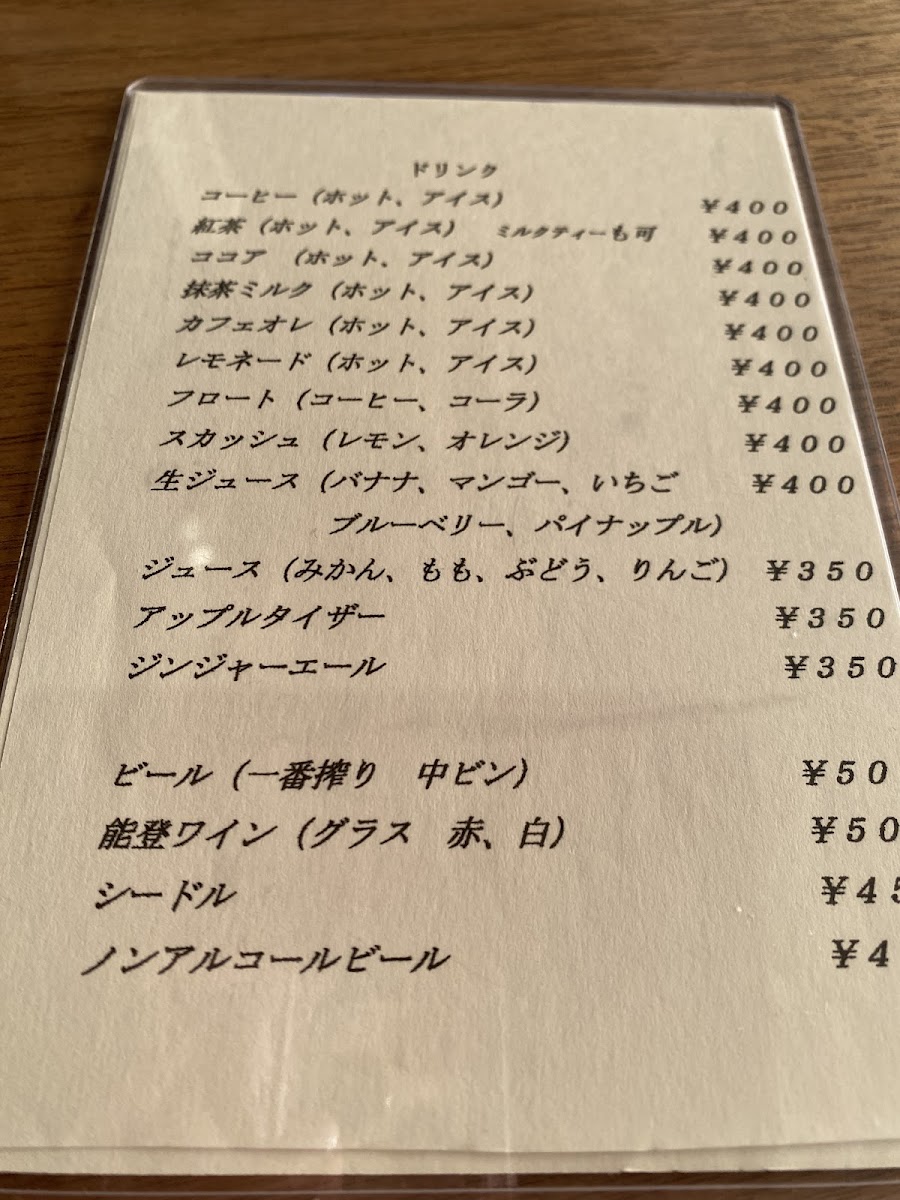 ドリンク
コーヒー（ホット、アイス） ￥４００
紅茶（ホット、アイス） ミルクティーも可 ￥４００
ココア （ホット、アイス） ￥４００
抹茶ミルク（ホット、アイス） ￥４００
カフェオレ（ホット、アイス） ￥４００
レモネード（ホット、アイス） ￥４００
フロート（コーヒー、コーラ） ￥４００
スカッシュ（レモン、オレンジ） ￥４００
生ジュース（バナナ、マンゴー、いちご ￥４００
ブルーベリー、パイナップル）
ジュース（みかん、もも、ぶどう、りんご） ￥３５０
アップルタイザー ￥３５０
ジンジャーエール ￥３５０
ビール（一番搾り 中ビン） ￥５０
能登ワイン（グラス 赤、白） ￥５０
シードル ￥４５
ノンアルコールビール ￥４